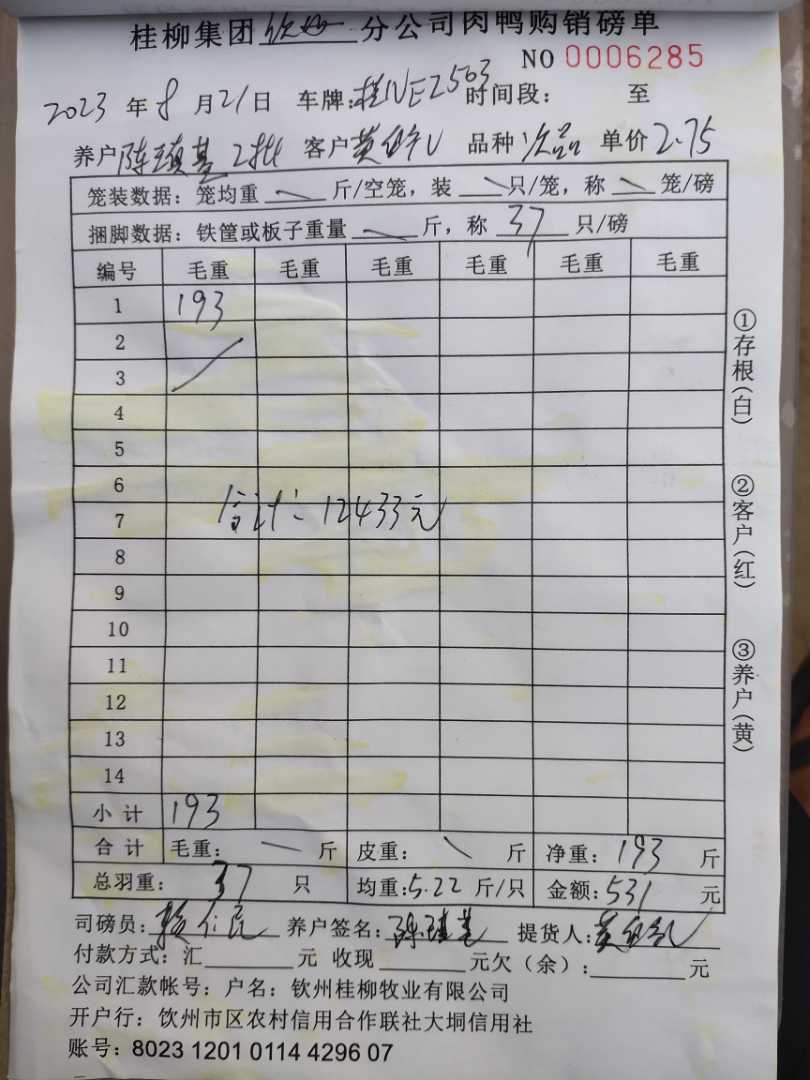 桂柳集团钦州分公司肉鸭购销磅单
NO 0006285
2023 年 8 月 21 日 车牌:桂NE2503 时间段: 至
养户 陈瑱基 2批 客户 黄 品种 次品 单价 2.75
笼装数据:笼均重 斤/空笼,装 只/笼,称 笼/磅
捆脚数据:铁筐或板子重量 斤,称 37 只/磅
编号 毛重 毛重 毛重 毛重 毛重 毛重
1 193
2
3
4
5
6
7
合计: 12433元
8
9
10
11
12
13
14
小计 193
合计 毛重: 斤 皮重: 斤 净重: 193 斤
总羽重: 37 只 均重:5.22 斤/只 金额:531 元
司磅员: 仁良 养户签名: 陈瑱基 提货人: 黄
付款方式:汇 元 收现 元欠(余): 元
公司汇款帐号:户名:钦州桂柳牧业有限公司
开户行:钦州市区农村信用合作联社大垌信用社
账号:8023 1201 0114 4296 07
①存根(白)
②客户(红)
③养户(黄)